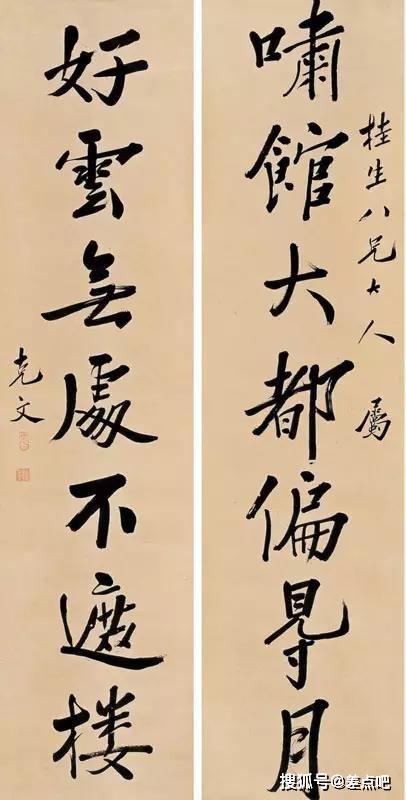 桂生八兄大人 屬
嘯館大都偏䙷月
好雲無處不遮楼
克文
搜狐号@差点吧